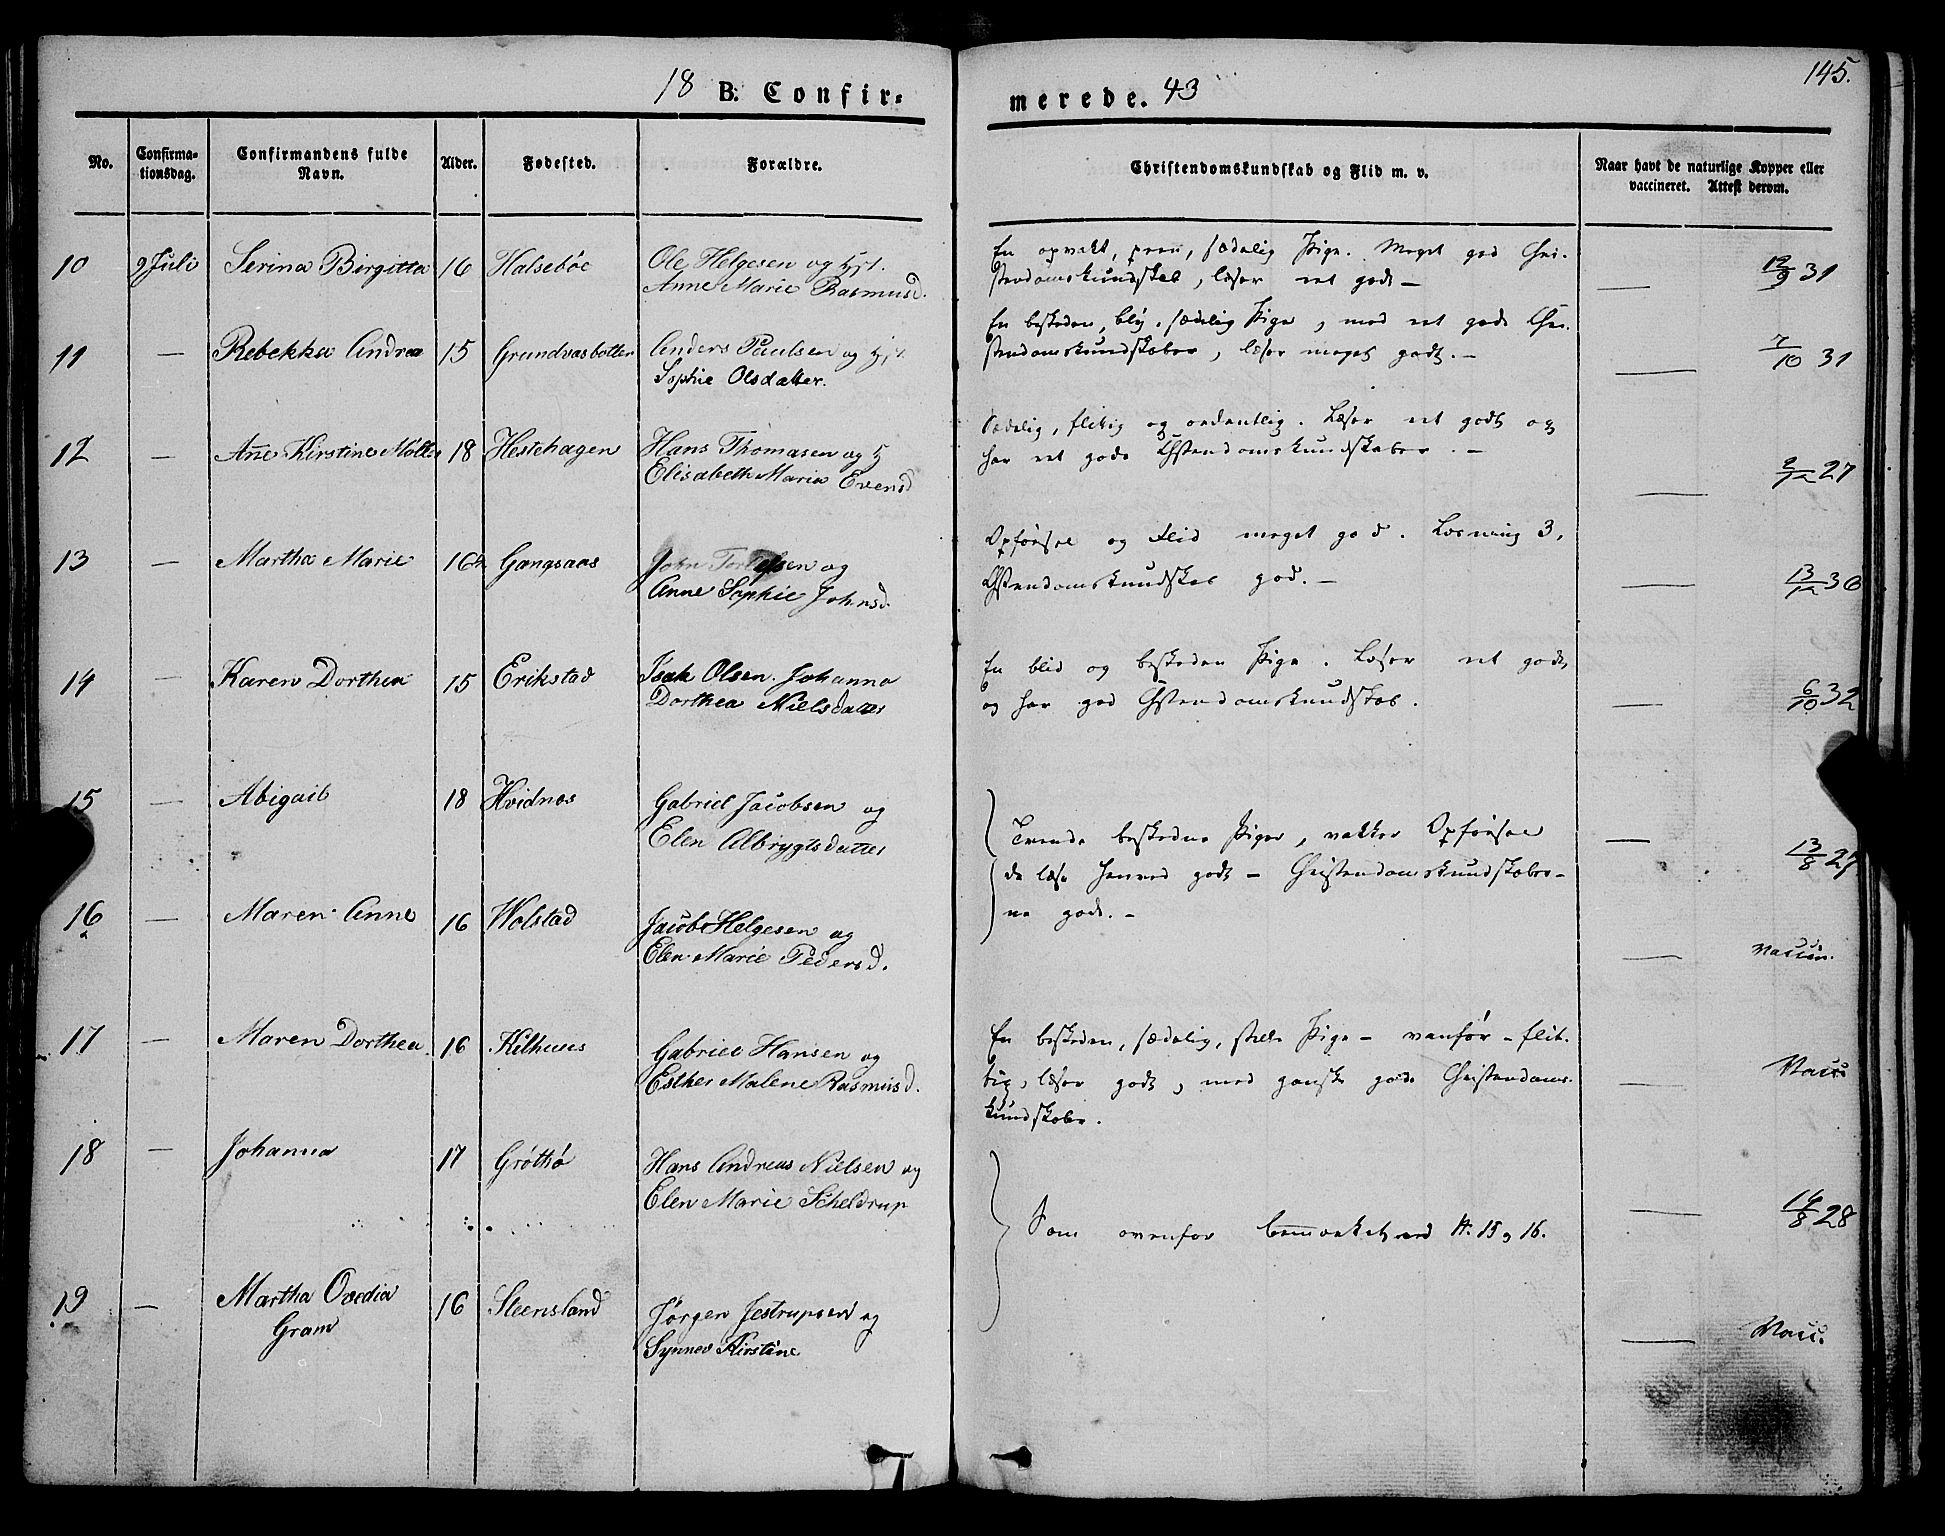 18 B. Confirmerede. 43
145.
No.
Confirmationsdag.
Confirmandens fulde Navn.
Alder.
Fødested.
Forældre.
Christendomskundskab og Flid m. v.
Naar havt de naturlige Kopper eller
vaccineret. Attest derom.
10 9 Juli Serina Birgitta 16 Halsebøe
Ole Helgesen og hst.
Anne Marie Rasmusd.
En opvakt, pæn, sædelig Pige. Meget god Chri-
stendomskundskab, læser ret godt —
— 12/9 31
11 — Rebekka Andrea 15 Grundvasbotten
Anders Paulsen og
Sophie Olsdatter.
En beskeden, bly, sædelig Pige, med ret gode Chri-
stendomskundskaber, læser meget godt. —
— 7/10 31
12 — Ane Kirstine Møller 18 Hestehagen
Hans Thomasen og
Elisabeth Maria Evensd
Sædelig, flitig og ordentlig. Læser ret godt og
har ret gode Chstendomskundskaber. —
27
13 — Martha Marie Gangsaas
John og
Anne Sophie Johnsd.
Opførsel og Flid meget god. Læsning 3,
Chstendomskundskab god. —
— 13/12 30
14 — Karen Dorthea 15 Erikstad
Isak Olsen. Johanna
Dorthea Nielsdatter
En blid og beskeden Pige. Læser ret godt,
og har god Chstendomskundskab.
— 6/10 32
15 — Abigail 18 Hvidnæs
Gabriel Jacobsen og
Elen Albrygtsdatter
Tvende beskedne Piger, vakker Opførsel
de læse henved godt — Christendomskundskaber-
ne gode. —
— 13/8 27
16 — Maren Anne 16 Wolstad
Jacob Helgesen og
Elen Marie Pedersd.
— Vaccin.
17 — Maren Dorthea 16 Kilhuus
Gabriel Hansen og
Esther Malene Rasmusd.
En beskeden, sædelig, stille Pige — vanfør — flit-
tig, læser godt, med ganske gode Christendoms-
kundskaber.
— Vacc
18 — Johanna 17 Grøttø
Hans Andreas Nielsen og
Elen Marie Scheldrup
Som ovenfor bemærket ved N. 15 og 16.
— 14/8 28
19 — Martha Ovedia 16 Steensland
Gram
Jørgen Jestrupsen og
Synnev Kirstine
— Vacc.